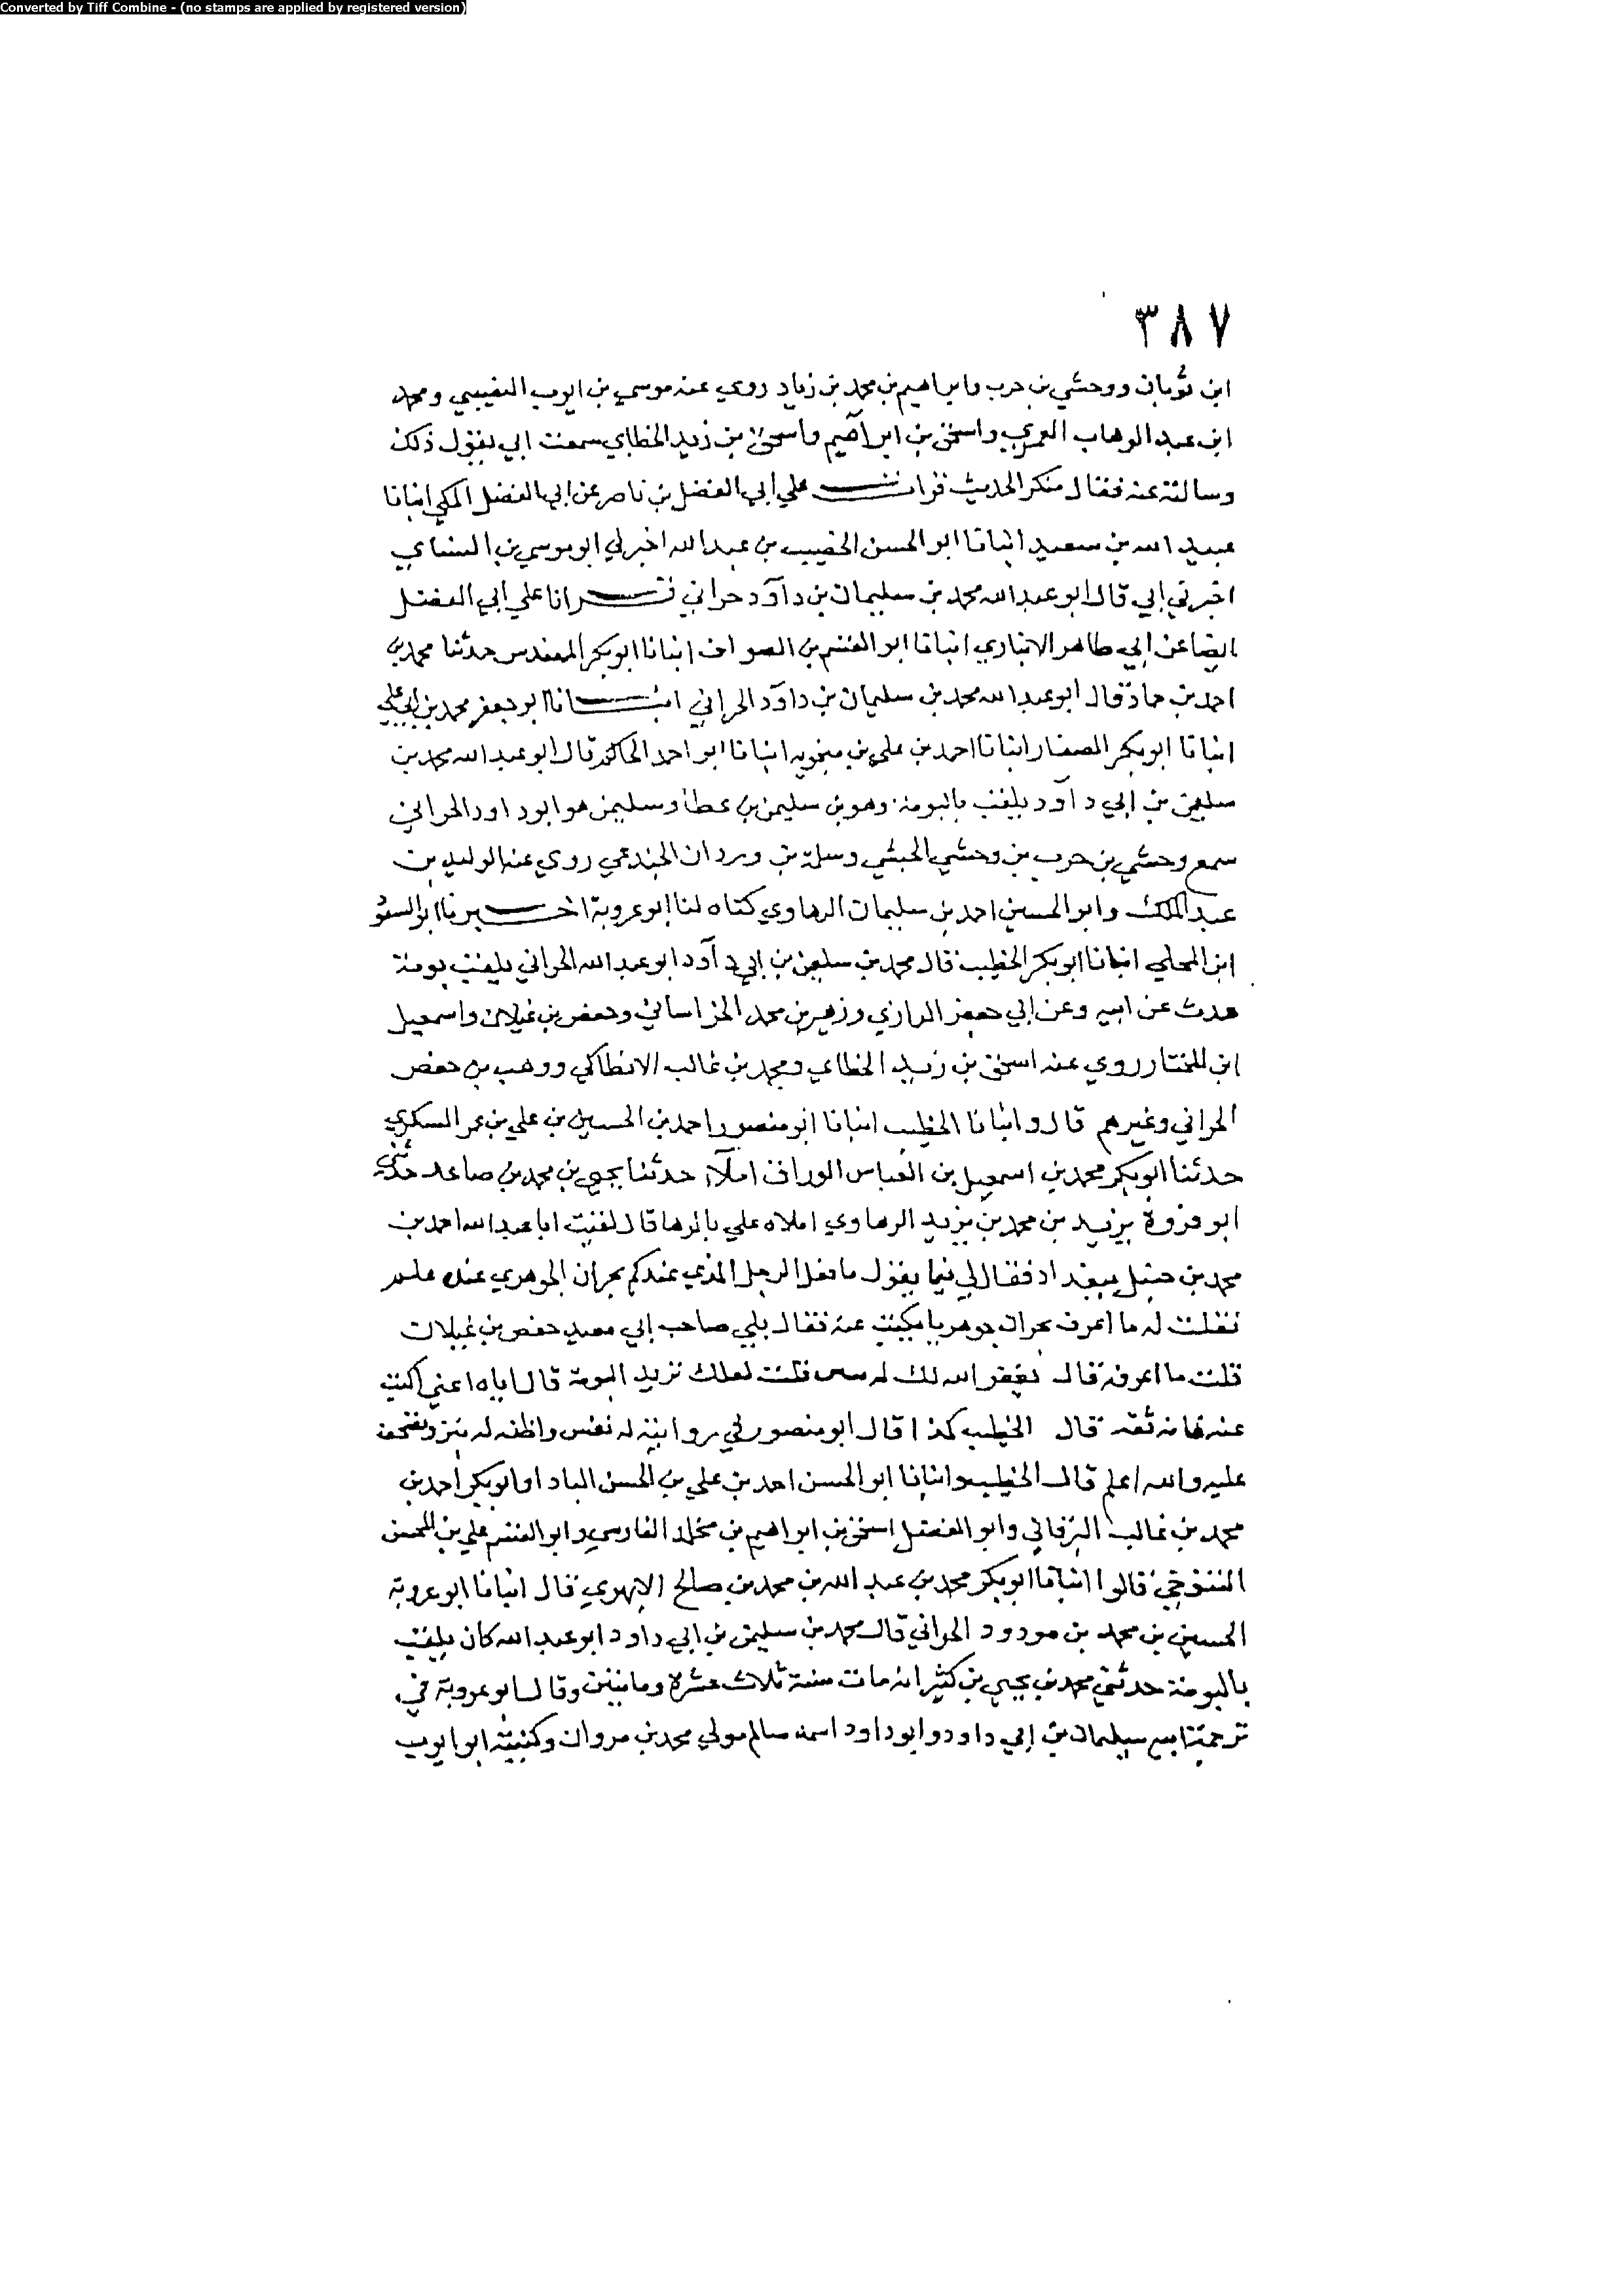 Converted by Tiff Combine - (no stamps are applied by registered version)
٣٨٧
ابن ثوبان ووحشي بن حرب وابراهيم بن محمد بن زياد روي عنه موسي بن ايوب النصيبي ومحمد
ابن عبد الوهاب العمري واسحق بن ابراهيم واسحق بن زيد الخطابي سمعت ابي يقول ذلك
وسالته عنه فقال منكر الحديث قرات علي ابي الفضل بن ناصر عن ابي الفضل المكي انبانا
عبيد الله بن سعيد انبانا ابو الحسن الخصيب بن عبد الله اخبرني ابو موسي بن النسائي
اخبرني ابي قال ابو عبد الله محمد بن سليمان بن داود حراني قرانا علي ابي الفضل
ايضا عن ابي طاهر الانباري انبانا ابو القسم بن الصواف انبانا ابو بكر المهندس حدثنا محمد بن
احمد بن حماد قال ابو عبد الله محمد بن سليمان بن داود الحراني انبانا ابو جعفر محمد بن ابي علي
انبانا ابو بكر الصفار انبانا احمد بن علي بن منجويه انبانا ابو احمد الحاكم قال ابو عبد الله محمد بن
سليمن بن ابي داود يلقب بالبومة وهو بن سليمن بن عطا وسليمن هو ابو داود الحراني
سمع وحشي بن حرب بن وحشي الحبشي وسلمة بن وردان الجندعي روي عنه الوليد بن
عبد الملك وابو الحسين احمد بن سليمان الرهاوي كناه لنا ابو عروبة اخبرنا ابو السعود
ابن المجلي انبانا ابو بكر الخطيب قال محمد بن سليمن بن ابي داود ابو عبد الله الحراني يلقب بومة
حدث عن ابيه وعن ابي جعفر الرازي وزهير بن محمد الخراساني وحفص بن غيلان واسمعيل
ابن المختار روي عنه اسحق بن زيد الخطابي ومحمد بن غالب الانطاكي ووهب بن حفص
الحراني وغيرهم قال وانبانا الخطيب انبانا ابو منصور احمد بن الحسين بن علي بن عمر السكري
حدثنا ابو بكر محمد بن اسمعيل بن العباس الوراق املآء حدثنا يحيي بن محمد بن صاعد حدثني
ابو فروة يزيد بن محمد بن يزيد الرهاوي املاه علي بالرها قال لقيت ابا عبد الله احمد بن
محمد بن حنبل ببغداد فقال لي فيما يقول ما فعل الرجل الذي عندكم بحران الجوهري عنده علم
فقلت له ما اعرف بحران جوهريا يكتب عنه فقال بلي صاحب ابي معبد حفص بن غيلان
قلت ما اعرفه قال يغفر الله لك له قلت لعلك تريد البومة قال اياه اعني اكتب
عنه فانه ثقة قال الخطيب كذا قال ابو منصور في روايته له نفس واظنه له نبز
عليه والله اعلم قال الخطيب وانبانا ابو الحسن احمد بن علي بن الحسن البادا وابو بكر احمد بن
محمد بن غالب البرقاني وابو الفضل اسحق بن ابراهيم بن مخلد الفارسي وابو القسم علي بن المحسن
التنوخي قالوا انبانا ابو بكر محمد بن عبد الله بن محمد بن صالح الابهري قال انبانا ابو عروبة
الحسين بن محمد بن مودود الحراني قال محمد بن سليمن بن ابي داود ابو عبد الله كان يلقب
بالبومة حدثني محمد بن يحيي بن كثير انه مات سنة ثلاث عشرة ومايتين وقال ابو عروبة في
ترجمة ابيه سليمان بن ابي داود وابو داود اسمه سالم مولي محمد بن مروان وكنيته ابو ايوب